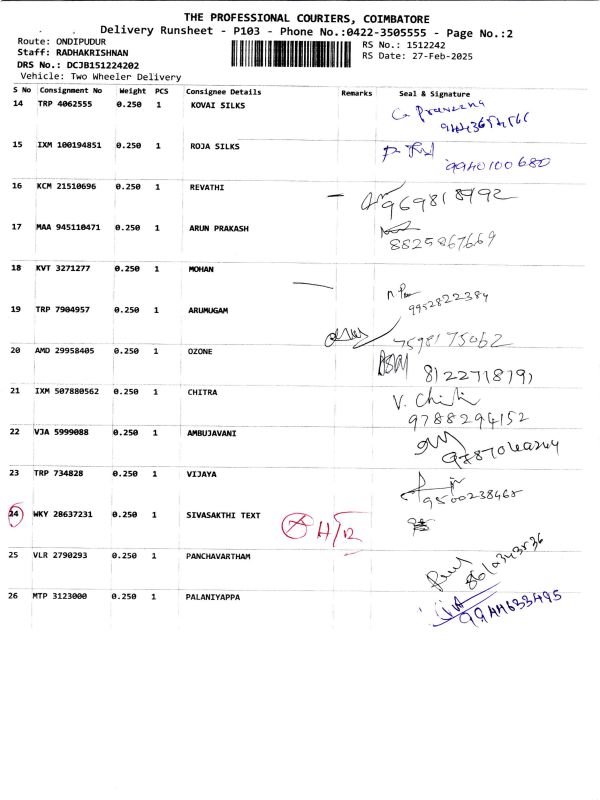 THE PROFESSIONAL COURIERS, COIMBATORE
Delivery Runsheet - P103 - Phone No.:0422-3505555 - Page No.:2
Route: ONDIPUDUR
RS No.: 1512242
Staff: RADHAKRISHNAN
RS Date: 27-Feb-2025
DRS No.: DCJB151224202
Vehicle: Two Wheeler Delivery
S No Consignment No Weight PCS Consignee Details Remarks Seal & Signature
14 TRP 4062555 0.250 1 KOVAI SILKS
15 IXM 100194851 0.250 1 ROJA SILKS
9940100680
16 KCM 21510696 0.250 1 REVATHI
9698118992
17 MAA 945110471 0.250 1 ARUN PRAKASH
8825867669
18 KVT 3271277 0.250 1 MOHAN
9952822384
19 TRP 7904957 0.250 1 ARUMUGAM
7598175062
20 AMD 29958405 0.250 1 OZONE
21 IXM 507880562 0.250 1 CHITRA
V. Chitra
9788294152
22 VJA 5999088 0.250 1 AMBUJAVANI
23 TRP 734828 0.250 1 VIJAYA
9500238468
24 WKY 28637231 0.250 1 SIVASAKTHI TEXT
H/12
25 VLR 2790293 0.250 1 PANCHAVARTHAM
26 MTP 3123000 0.250 1 PALANIYAPPA
9944633495